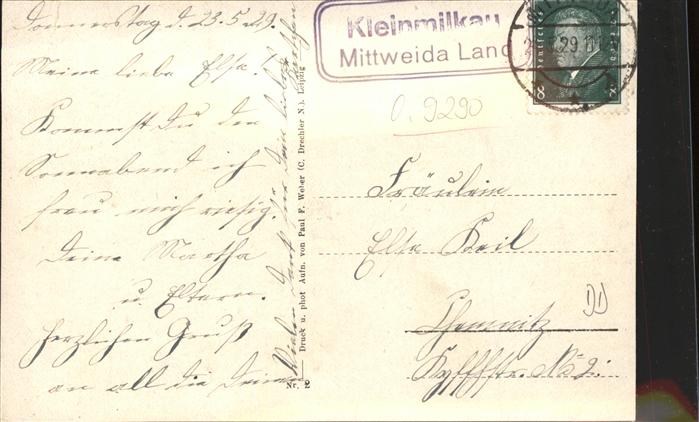 Donnerstag d. 23.5.29.
Meine liebe Else!
Kommst Du den
Sonnabend ich
freu mich riesig.
Deine Martha
u. Eltern.
Herzlichen Gruß
an all die Deinen
Vielen Dank für Dein liebes
Druck u. phot Aufn. von Paul F. Weber (C. Drechler N.), Leipzig
Nr.
Kleinmilkau
Mittweida Land
29
8
0.9290
Fräulein
Else Keil
Chemnitz
No 2.